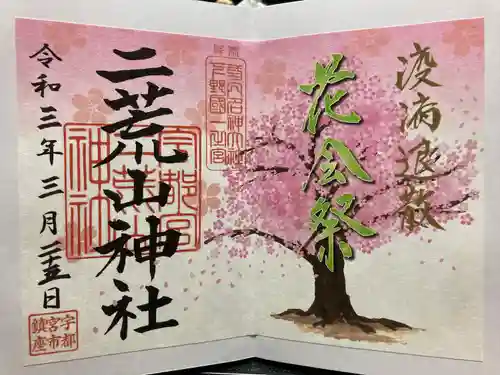 疫病退散
花会祭
下野國一之宮
二荒山神社
宇都宮
二荒山
神社
令和三年三月二十五日
宇都
宮市
鎮座